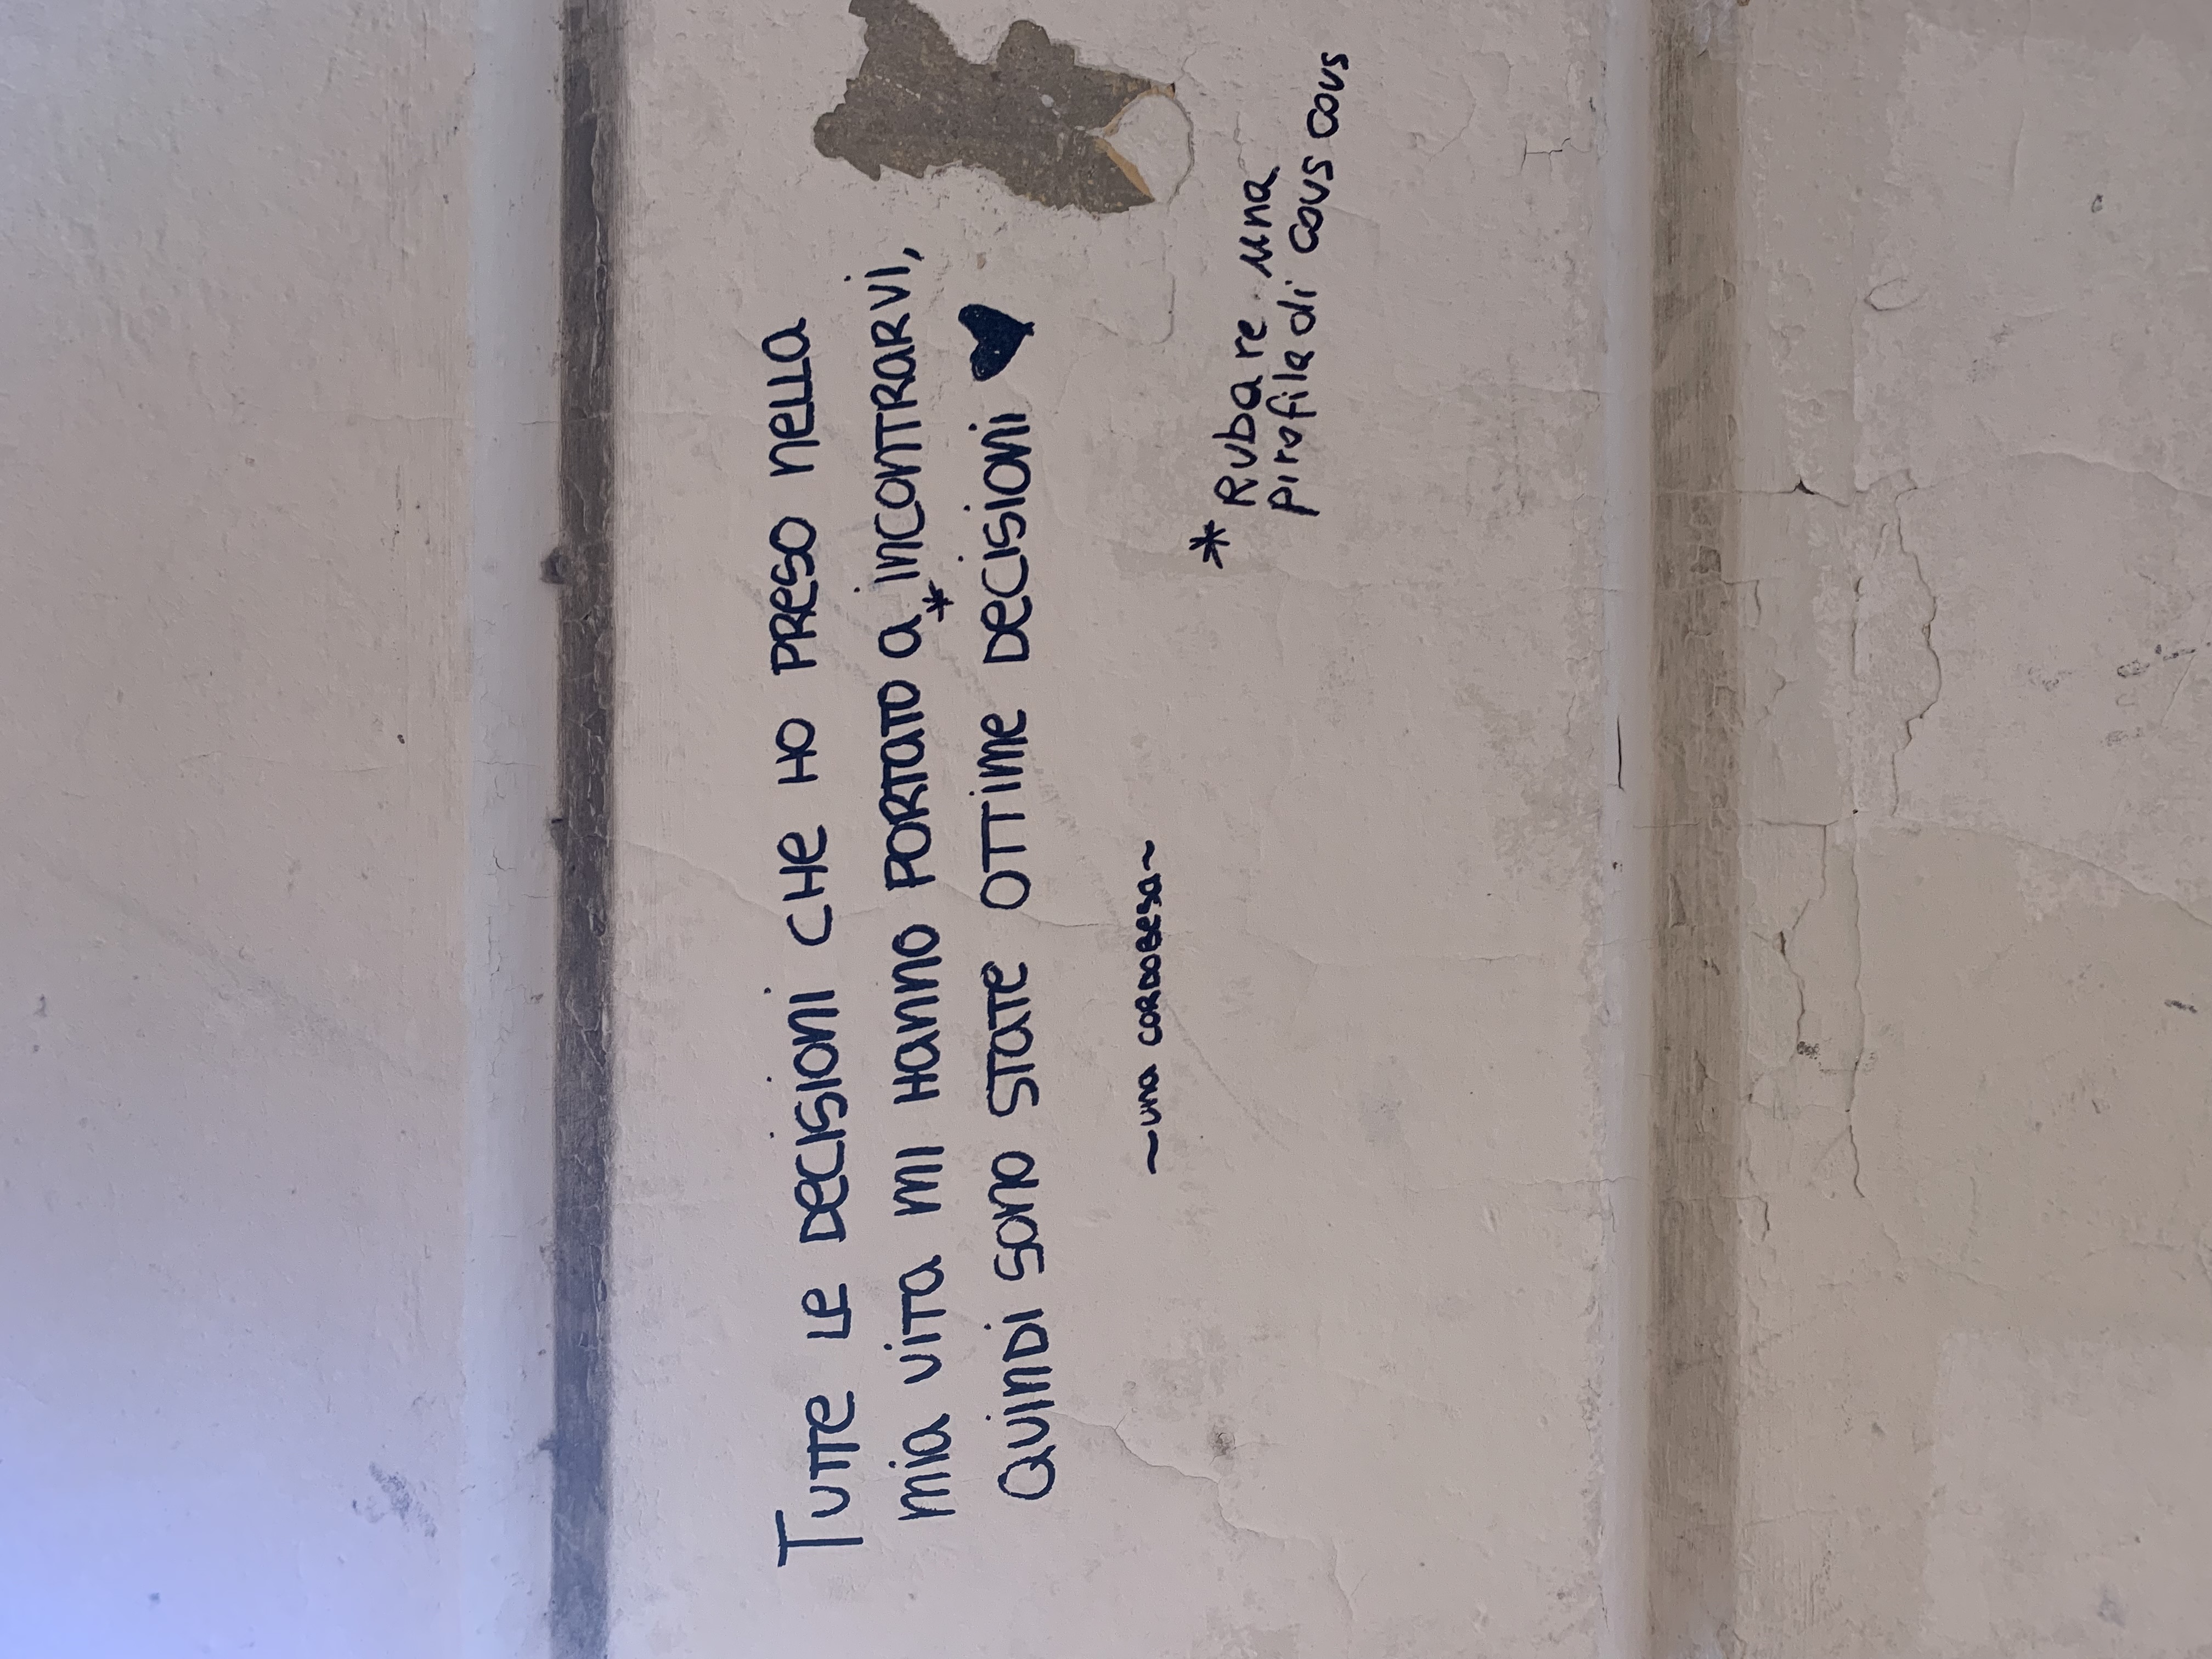 Tutte le decisioni che ho preso nella
mia vita mi hanno portato a * incontrarvi,
quindi sono state ottime decisioni ♥
~una cordobesa~
* Rubare una
pirofila di cous cous